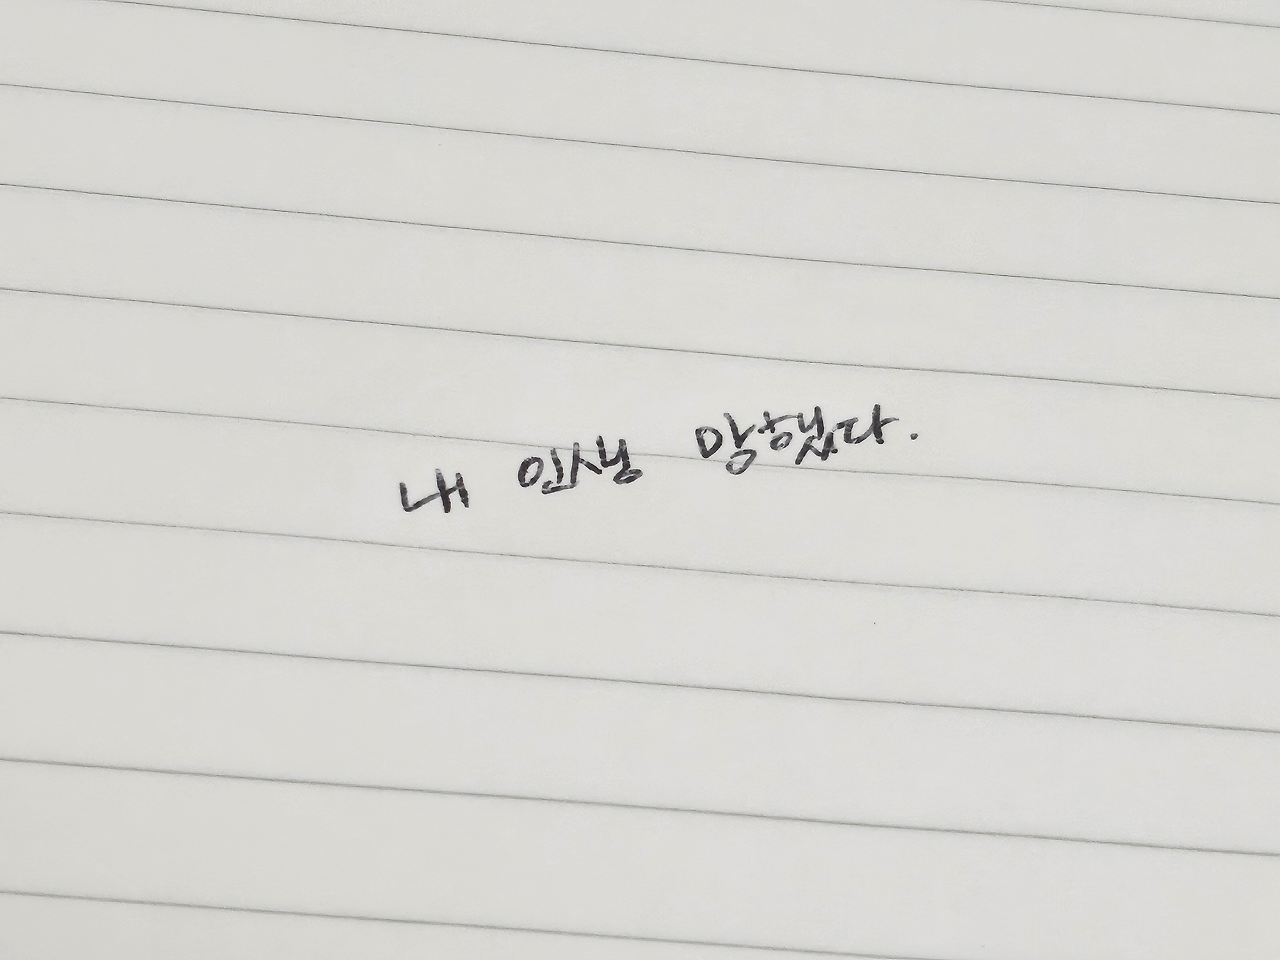 내 인생 망했다.